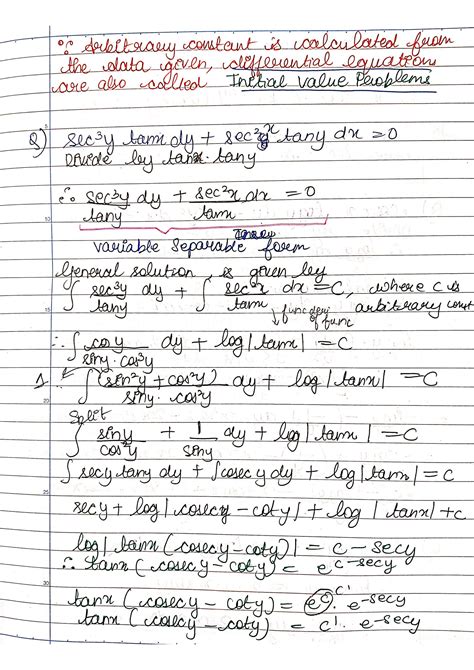 ∵ Arbitrary constant is calculated from
the data given, differential equation
are also called Initial Value Problems
Q) sec³y tanx dy + sec²x tany dx = 0
Divide by tanx · tany
∴ sec³y/tany dy + sec²x/tanx dx = 0
variable separable form
General solution is given by
∫ sec³y/tany dy + ∫ sec²x/tanx dx = C, where C is
arbitrary const
↓ func deri
of func
∴ ∫ cosy/(siny · cos³y) dy + log|tanx| = C
1 ← ∫ (sin²y + cos²y)/(siny · cos²y) dy + log|tanx| = C
Split
∫ siny/cos²y + 1/siny dy + log|tanx| = C
∫ secy tany dy + ∫ cosec y dy + log|tanx| = C
secy + log|cosecy - coty| + log|tanx| + c
log|tanx (cosecy - coty)| = c - secy
∴ tanx (cosecy - coty) = e^(c - secy)
tanx (cosecy - coty) = e^c · e^(-secy)
c'
tanx (cosecy - coty) = c' · e^(-secy)